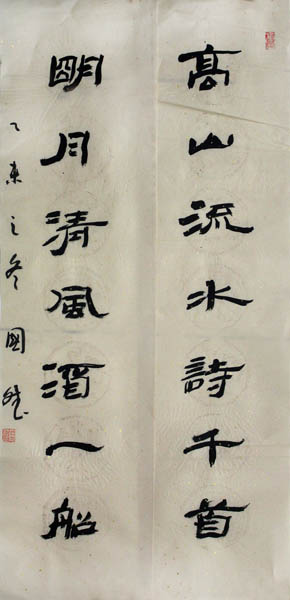 高山流水詩千首
明月清風酒一船
之冬國